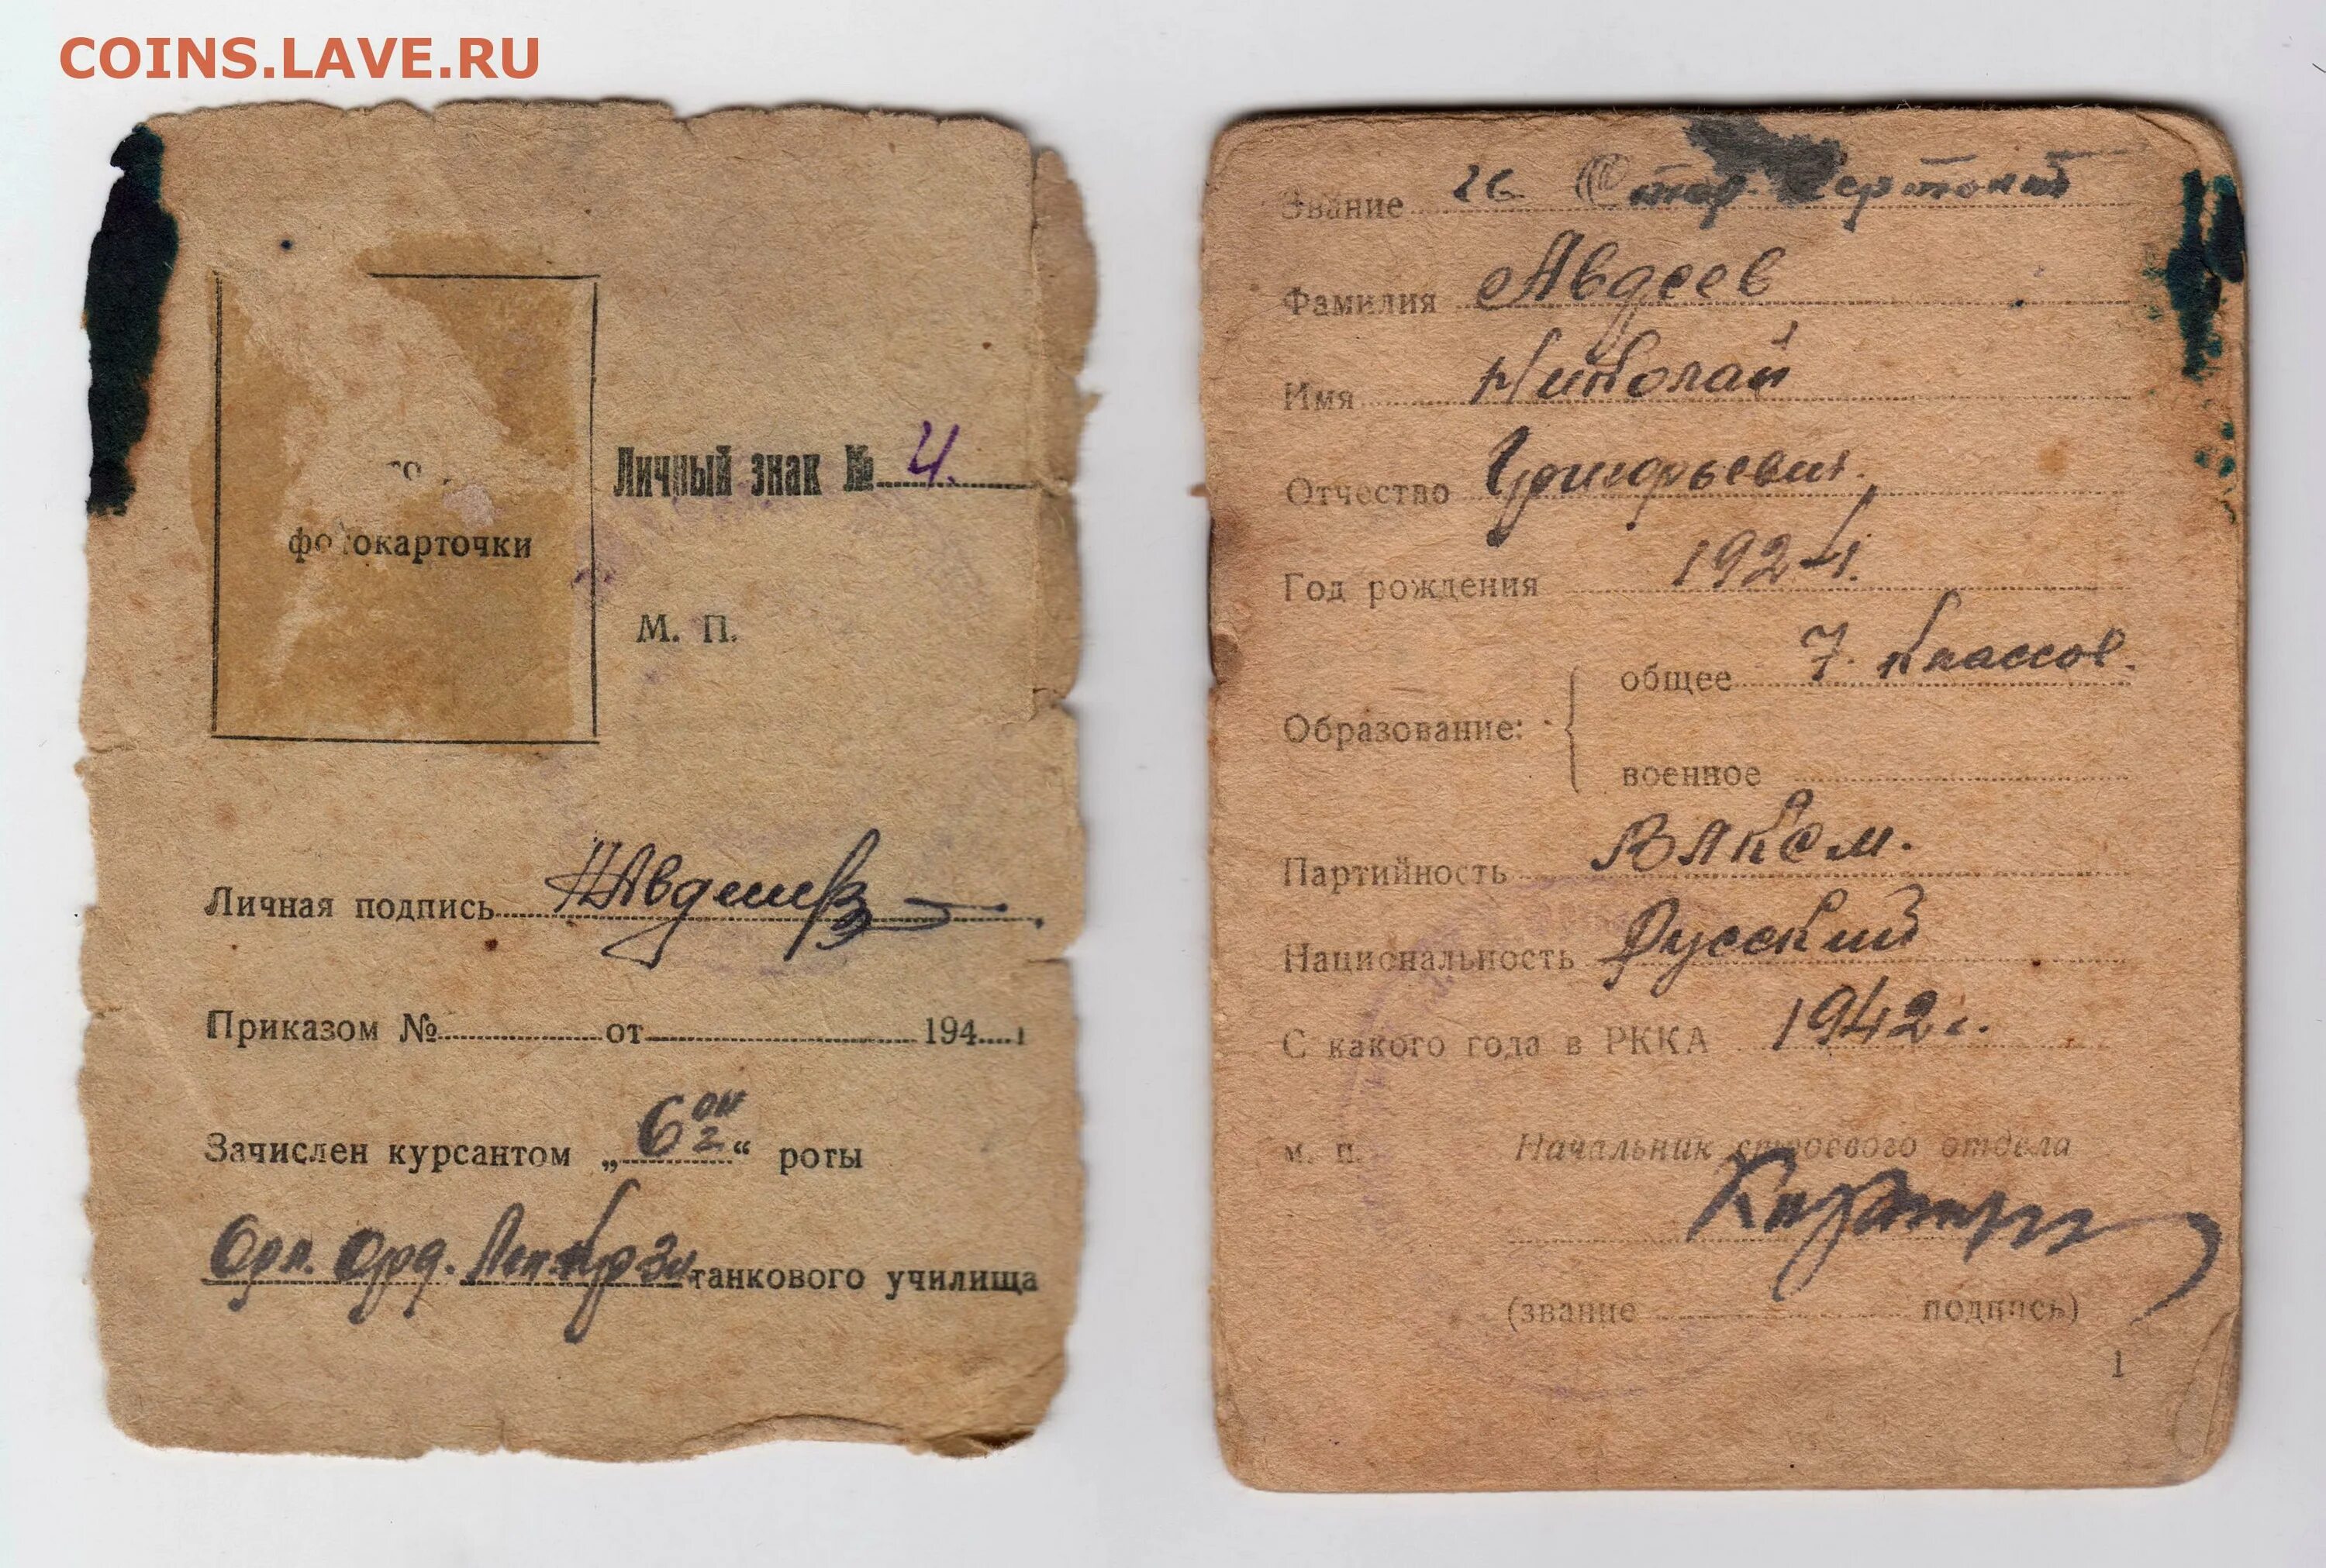 COINS.LAVE.RU
фотокарточки
Личный знак № 4.
М. П.
Личная подпись НАвдеев
Приказом № от 194
Зачислен курсантом „6ой“ роты
Орл. Орд. Лен. Кр Зн танкового училища
Звание Стар. Сержант
Фамилия Авдеев
Имя Николай
Отчество Григорьевич.
Год рождения 1924.
Образование: общее 7 классов.
военное
Партийность ВЛКСМ.
Национальность Русский
С какого года в РККА 1942 г.
М. П. Начальник строевого отдела
(звание подпись)
1